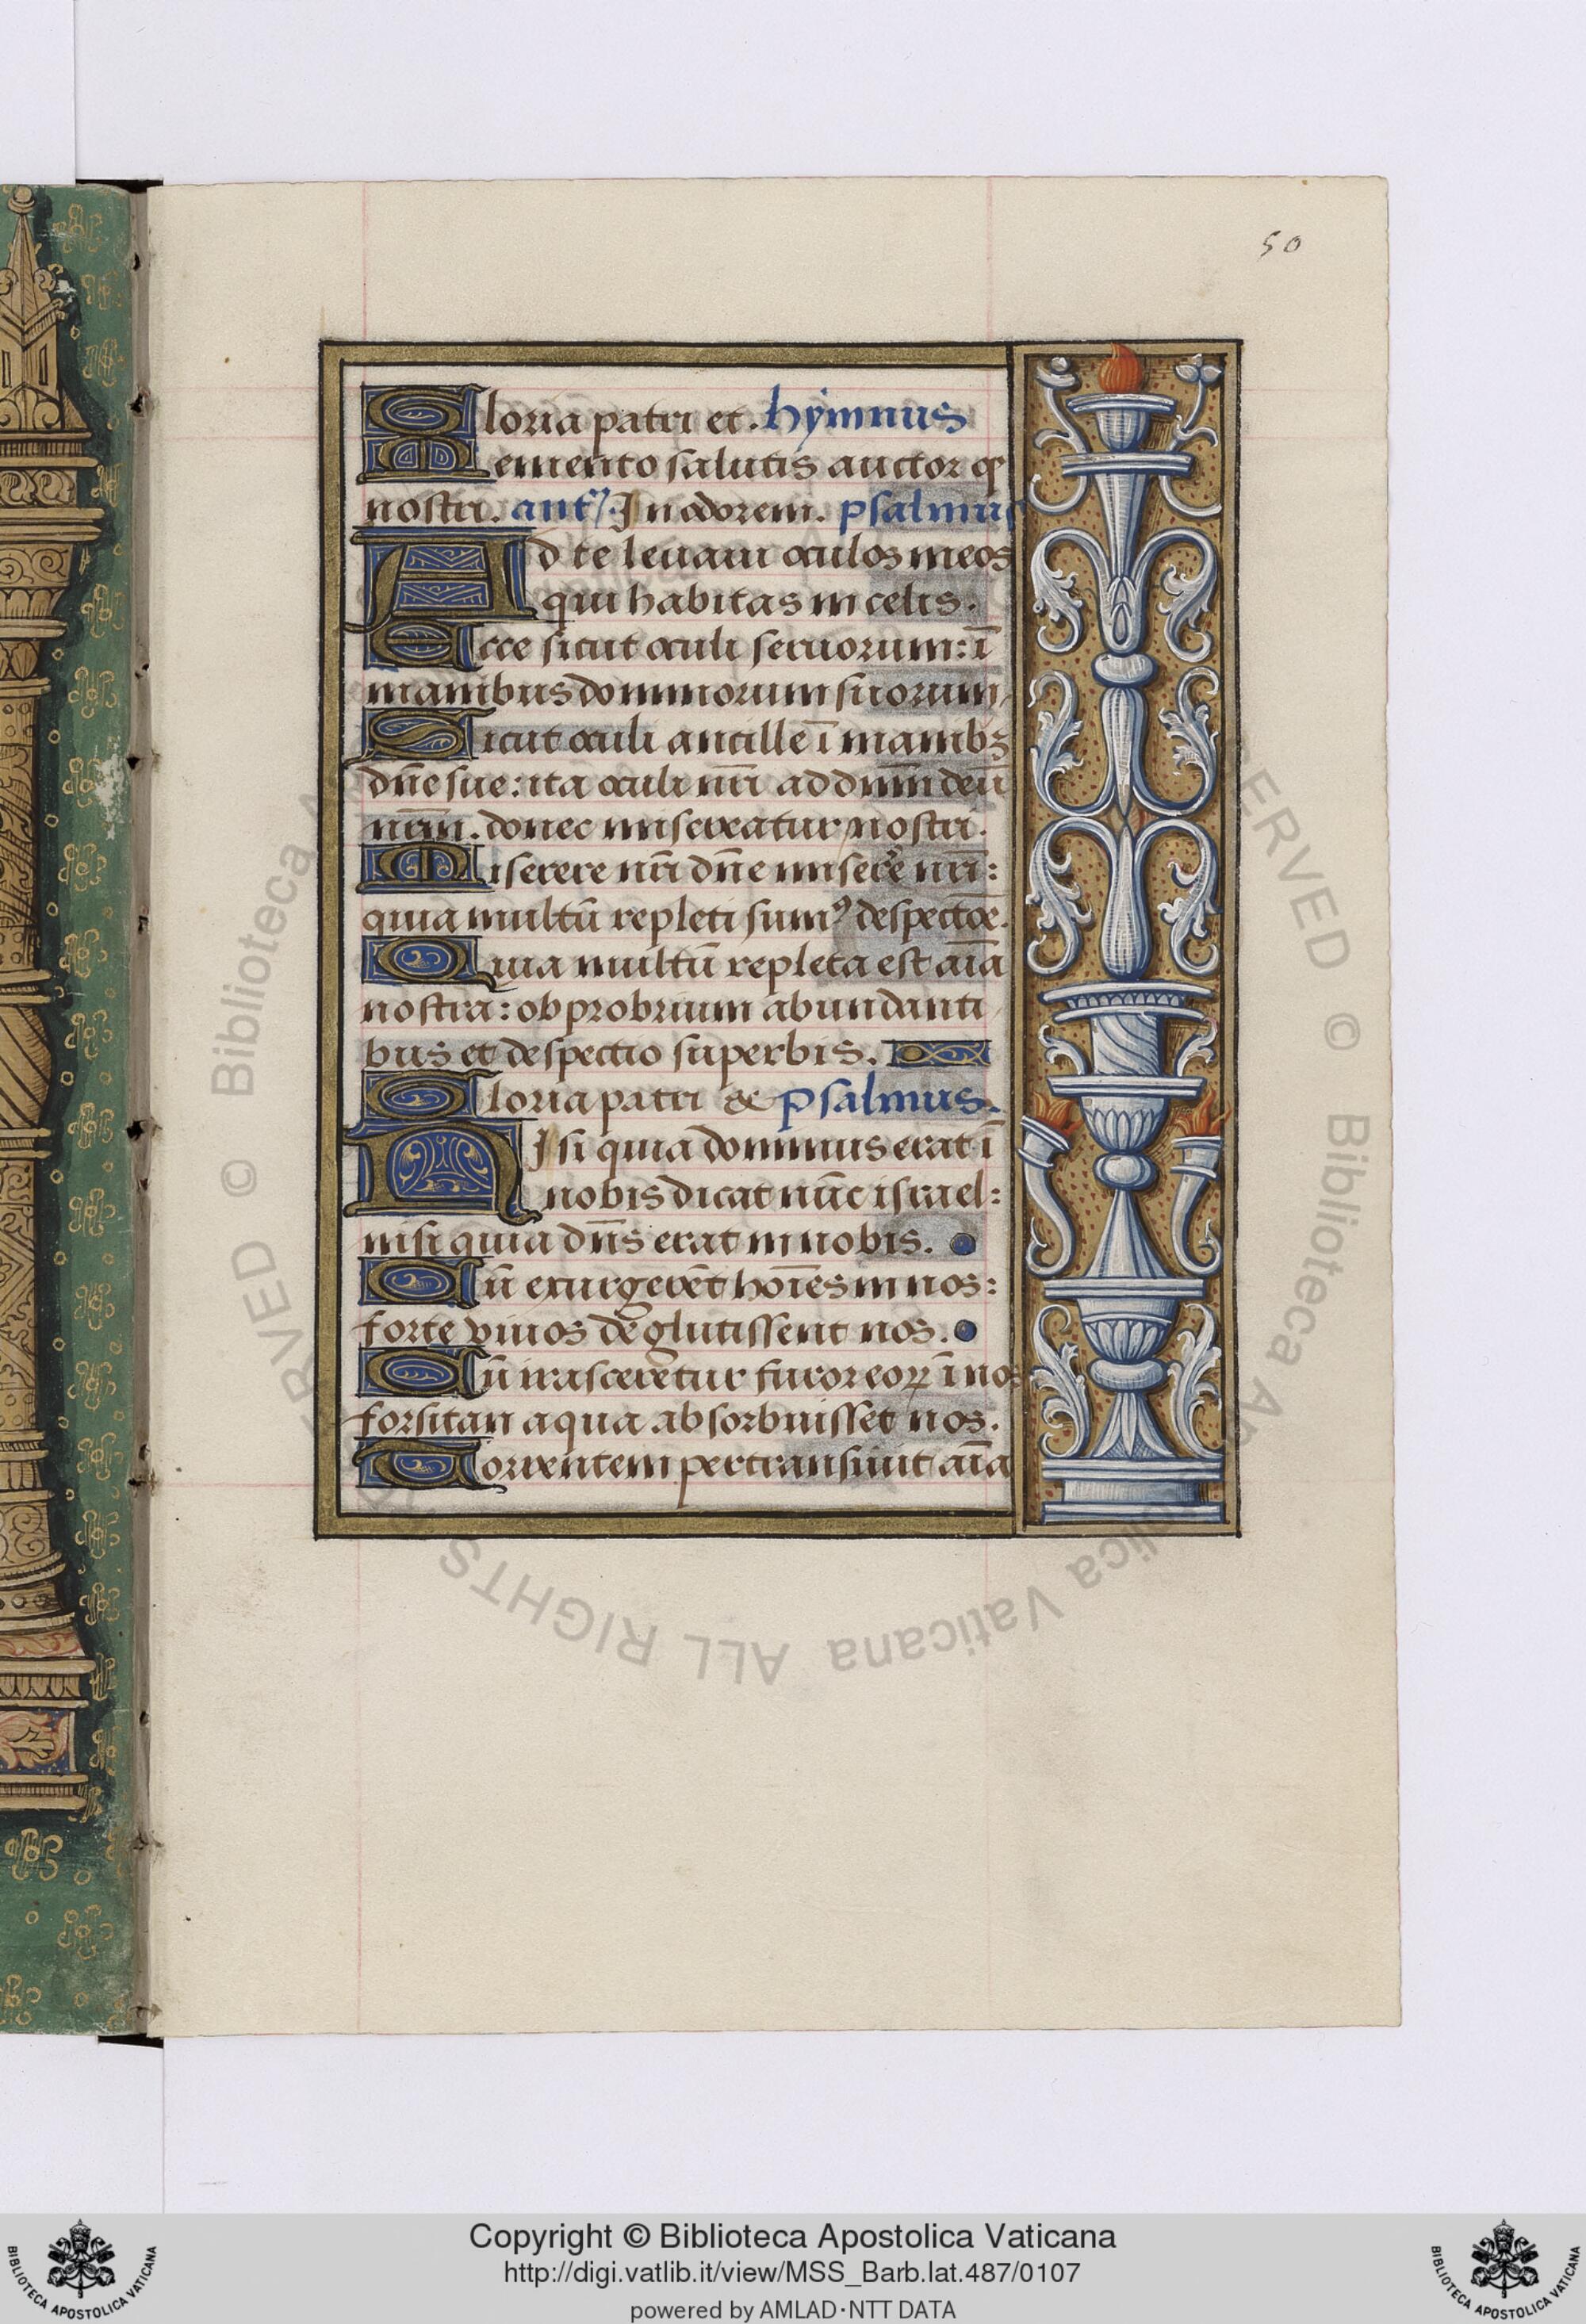 50
Gloria patri et. hymnus
Memento salutis auctor ꝙ
nostri. antʼ. In odorem. psalmus
Ad te levavi oculos meos
qui habitas in celis.
Ecce sicut oculi servorum: ī
manibus dominorum suorum
Sicut oculi ancille ī manibꝫ
dn̄e sue: ita oculi nr̄i ad dnm̄ deū
nrm̄. donec misereatur nostri.
Miserere nr̄i dn̄e miserē nr̄i:
quia multū repleti sumꝰ despectoe.
Quia multū repleta est aīa
nostra: obprobrium abundanti
bus et despectio superbis.
Gloria patri & psalmus.
NIsi quia dominus erat ī
nobis dicat nūc israel:
nisi quia dn̄s erat in nobis.
Cū exurgerēt hoīes in nos:
forte vivos deglutissent nos.
Cū irasceretur furor eoꝝ ī nos
forsitan aqua absorbuisset nos.
Torrentem pertransivit aīa
© Biblioteca Apostolica Vaticana ALL RIGHTS RESERVED
Copyright © Biblioteca Apostolica Vaticana
http://digi.vatlib.it/view/MSS_Barb.lat.487/0107
powered by AMLAD·NTT DATA
BIBLIOTECA APOSTOLICA VATICANA
BIBLIOTECA APOSTOLICA VATICANA